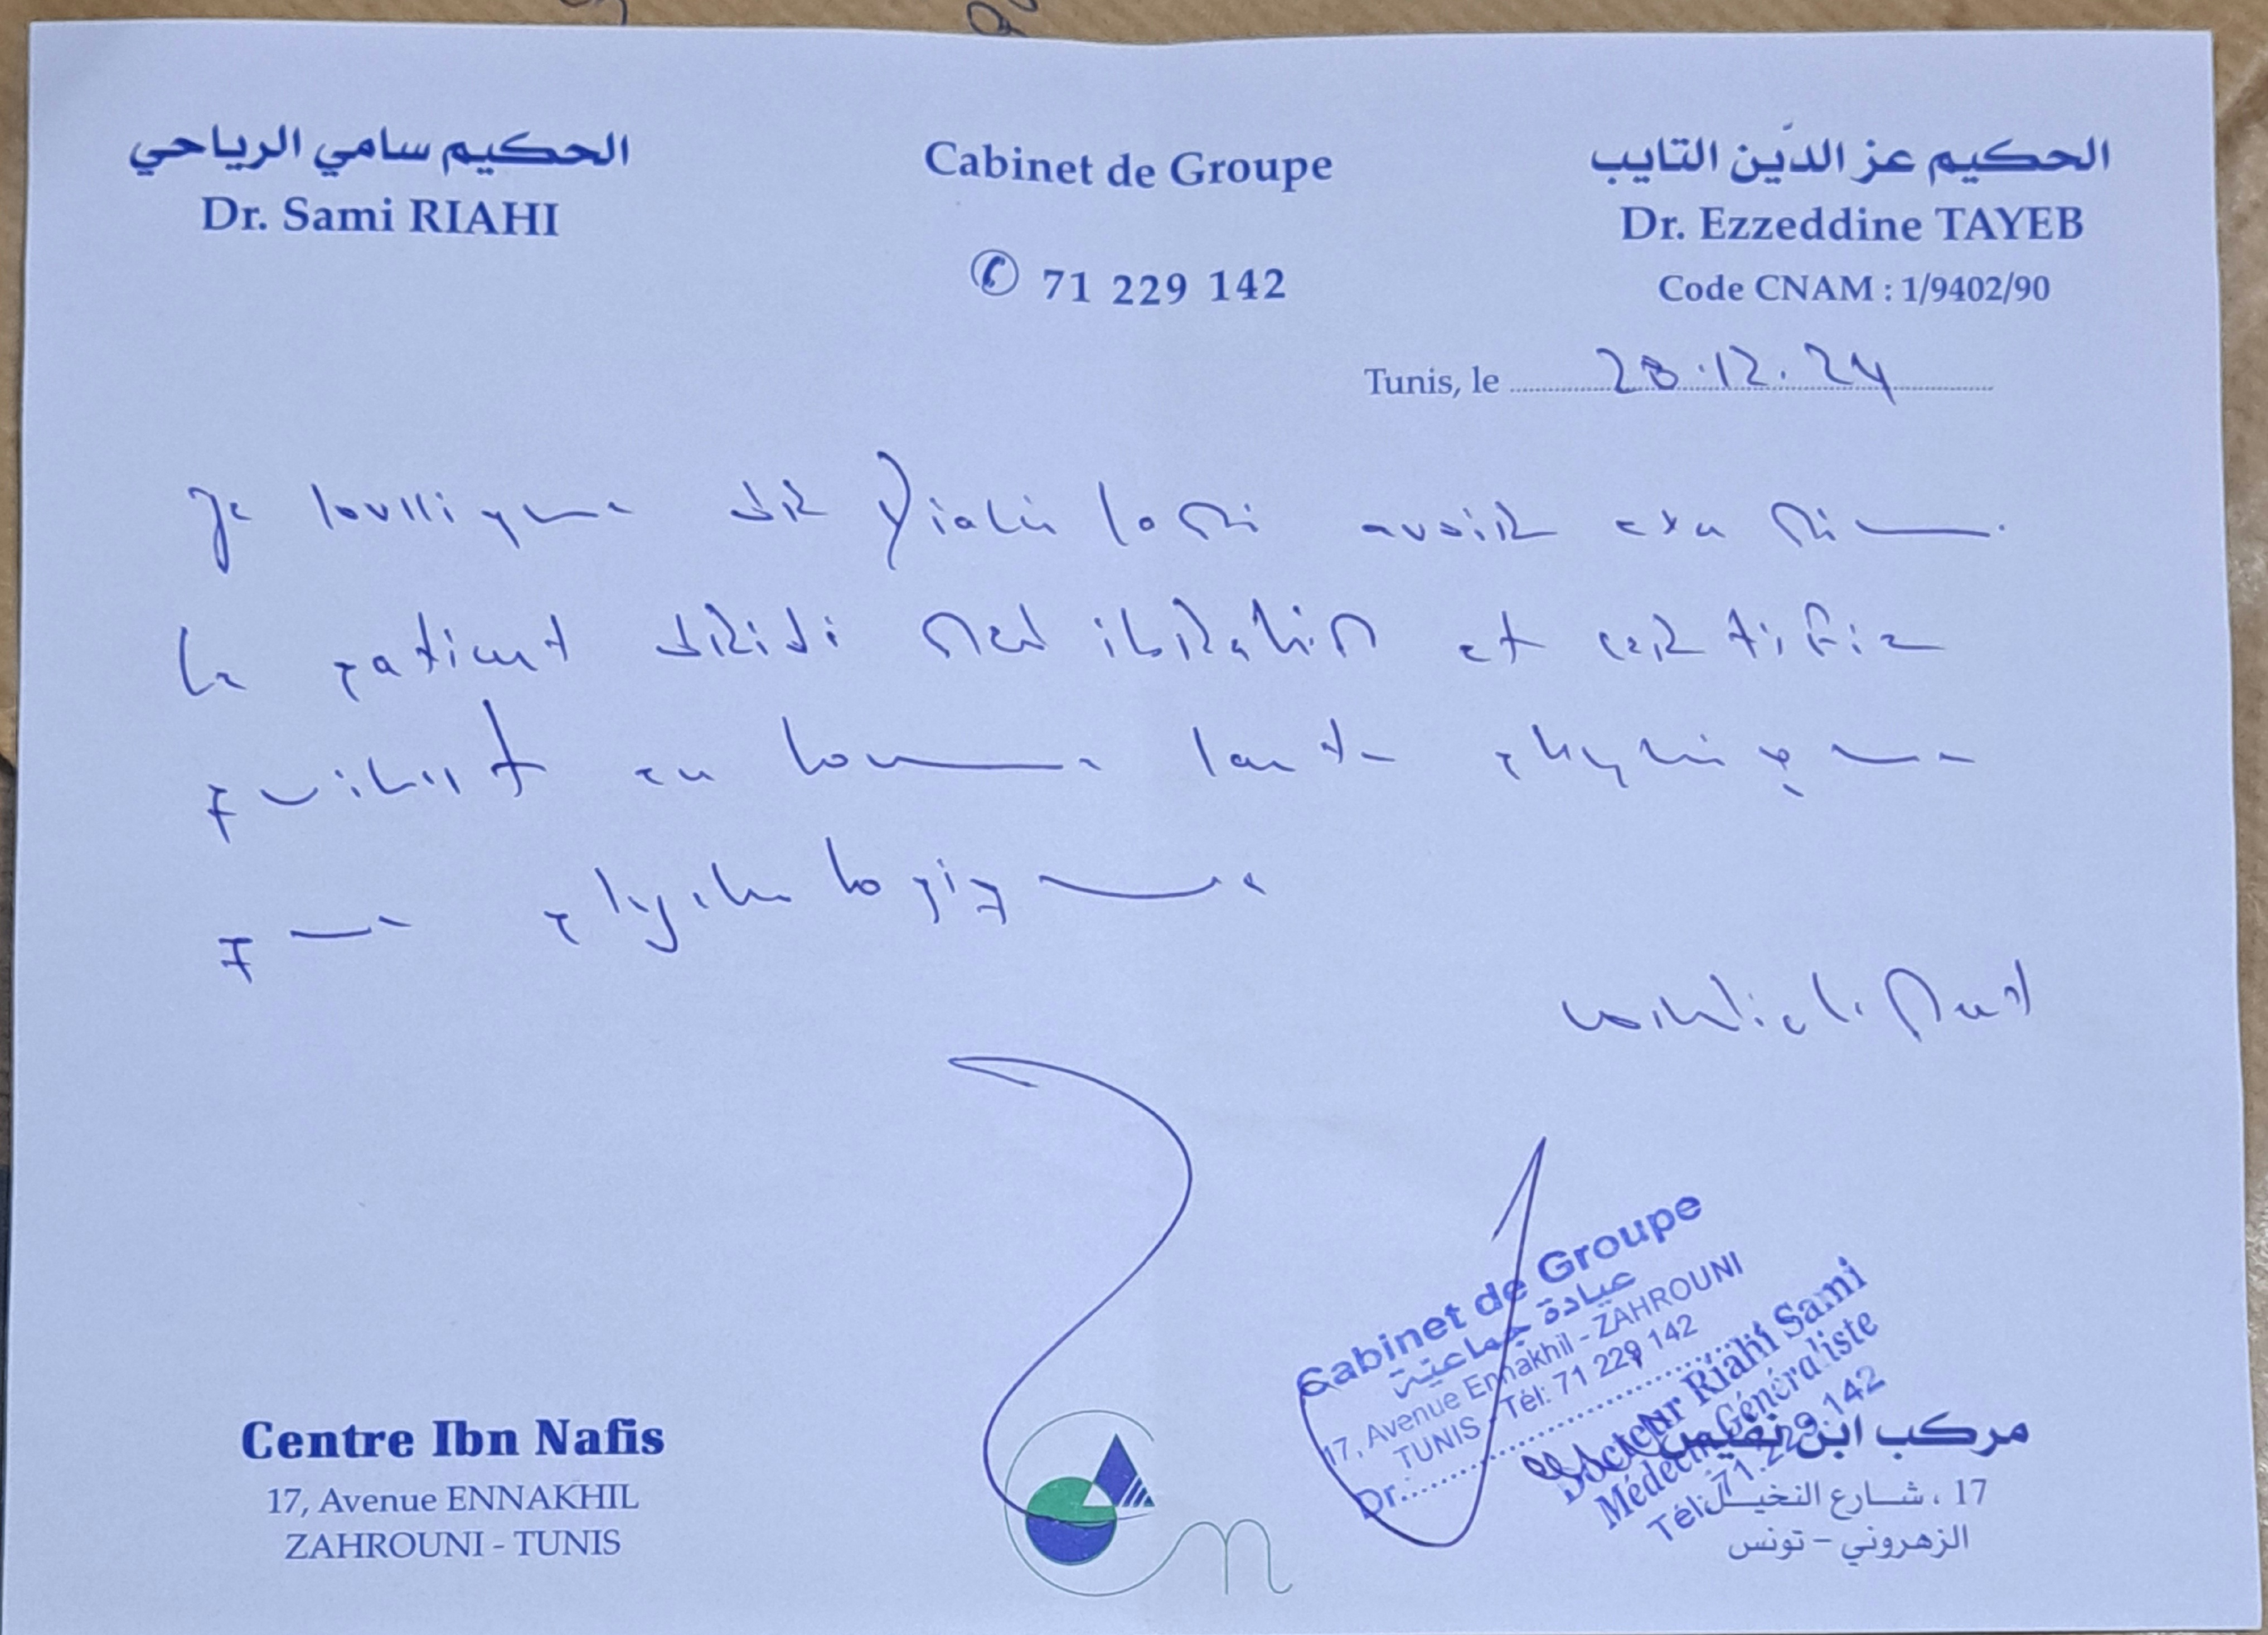 الحكيم سامي الرياحي
Dr. Sami RIAHI
Cabinet de Groupe
✆ 71 229 142
الحكيم عز الدّين التايب
Dr. Ezzeddine TAYEB
Code CNAM : 1/9402/90
Tunis, le 28.12.24
Je soussigne dr Riahi Sami avoir examine
le patient dridi Med ibrahim et certifie
qu'il est en bonne sante physique
que psychologique
Certificat
Centre Ibn Nafis
17, Avenue ENNAKHIL
ZAHROUNI - TUNIS
Cabinet de Groupe
عيادة جماعية
17, Avenue Ennakhil - ZAHROUNI
TUNIS - Tél: 71 229 142
Dr.
Docteur Riahi Sami
Médecin Généraliste
Tél: 71.229.142
مركب ابن نفيس
17 ، شارع النخيل
الزهروني - تونس